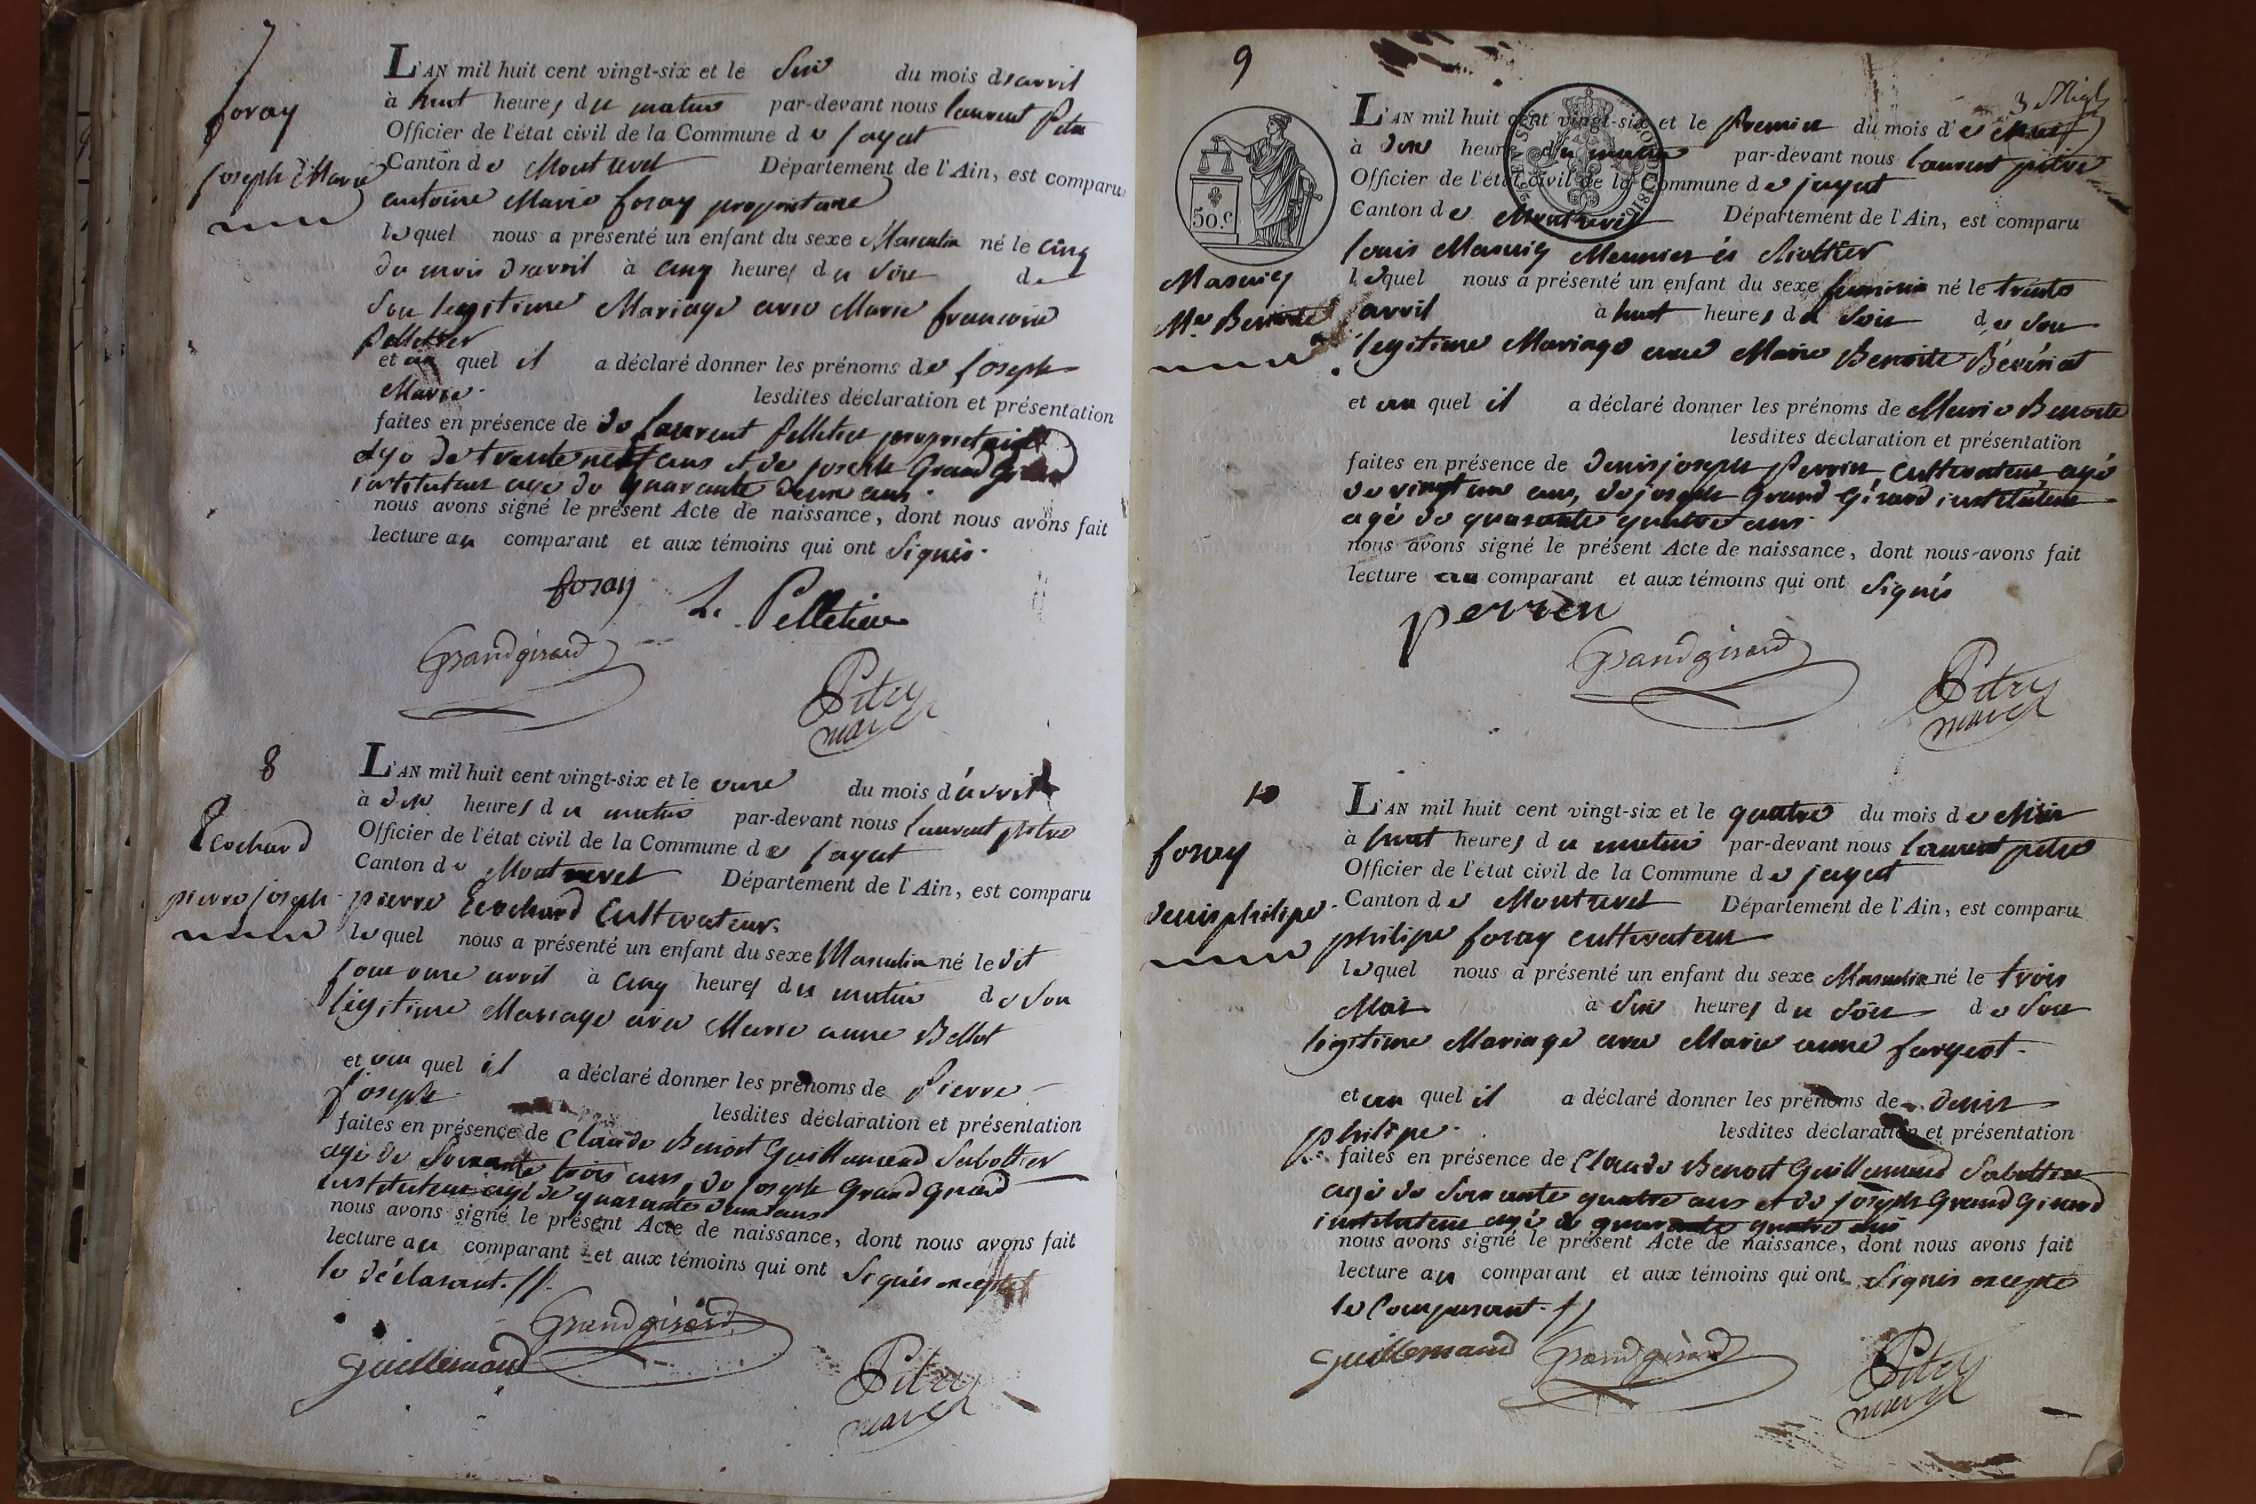 7
foray
joseph Marie
L'AN mil huit cent vingt-six et le Six du mois d'avril
à huit heures du matin par-devant nous laurent Pitre
Officier de l'état civil de la Commune de jayat
Canton de Montrevel Département de l'Ain, est comparu
antoine Marie foray proprietaire
lequel nous a présenté un enfant du sexe Masculin né le cinq
du mois d'avril à cinq heures du Soir de
Son legitime Mariage avec Marie francoise
Pelletier
et au quel il a déclaré donner les prénoms de joseph
Marie. lesdites déclaration et présentation
faites en présence de de laurent Pelletier proprietaire
agé de trente neuf ans et de joseph Grand Girard
instituteur agé de quarante deux ans.
nous avons signé le présent Acte de naissance, dont nous avons fait
lecture au comparant et aux témoins qui ont Signés.
foray L. Pelletier
Grandgirard
Pitre
maire
8
Ecochard
pierre joseph
L'AN mil huit cent vingt-six et le onze du mois d'avril
à dix heures du matin par-devant nous laurent pitre
Officier de l'état civil de la Commune de jayat
Canton de Montrevel Département de l'Ain, est comparu
pierre Ecochard Cultivateur.
lequel nous a présenté un enfant du sexe Masculin né le dit
jour onze avril à cinq heures du matin de Son
légitime Mariage avec Marie anne Bellot
et au quel il a déclaré donner les prénoms de Pierre
joseph lesdites déclaration et présentation
faites en présence de Claude Benoit Guillemaud Sabottier
agé de Soixante trois ans, de joseph Grand Girard
instituteur agé de quarante deux ans
nous avons signé le présent Acte de naissance, dont nous avons fait
lecture au comparant et aux témoins qui ont Signés excepté
le déclarant.
Grandgirard
Guillemaud
Pitre
maire
9
50.c
1816
Masuiy
Mie Benoite
L'AN mil huit cent vingt-six et le premier du mois de
à dix heures du matin par-devant nous laurent pitre
Officier de l'état civil de la Commune de jayat
Canton de Montrevel Département de l'Ain, est comparu
louis Masuiy Meunier
lequel nous a présenté un enfant du sexe feminin né le trente
avril à huit heures du Soir de Son
legitime Mariage avec Marie Benoite Bévériat
et au quel il a déclaré donner les prénoms de Marie Benoite
lesdites déclaration et présentation
faites en présence de denis joseph Perrin, cultivateur agé
de vingt un ans, de joseph Grand Girard instituteur
agé de quarante quatre ans.
nous avons signé le présent Acte de naissance, dont nous avons fait
lecture au comparant et aux témoins qui ont Signés
perren
Grandgirard
Pitre
maire
10
foray
denis philipe
L'AN mil huit cent vingt-six et le quatre du mois de Mai
à huit heures du matin par-devant nous laurent pitre
Officier de l'état civil de la Commune de jayat
Canton de Montrevel Département de l'Ain, est comparu
philipe foray cultivateur
lequel nous a présenté un enfant du sexe Masculin né le trois
Mai à Six heures du Soir de Son
legitime Mariage avec Marie anne fargeot.
et au quel il a déclaré donner les prénoms de denis
philipe. lesdites déclaration et présentation
faites en présence de Claude Benoit Guillemaud Sabottier
agé de Soixante quatre ans et de joseph Grand Girard
instituteur agé de quarante quatre ans
nous avons signé le présent Acte de naissance, dont nous avons fait
lecture au comparant et aux témoins qui ont Signés excepté
le Comparant.
Guillemaud Grandgirard
Pitre
maire